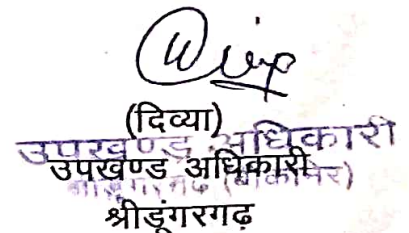 (दिव्या)
उपखण्ड अधिकारी
उपखण्ड अधिकारी
(बीकानेर)
श्रीडूंगरगढ़